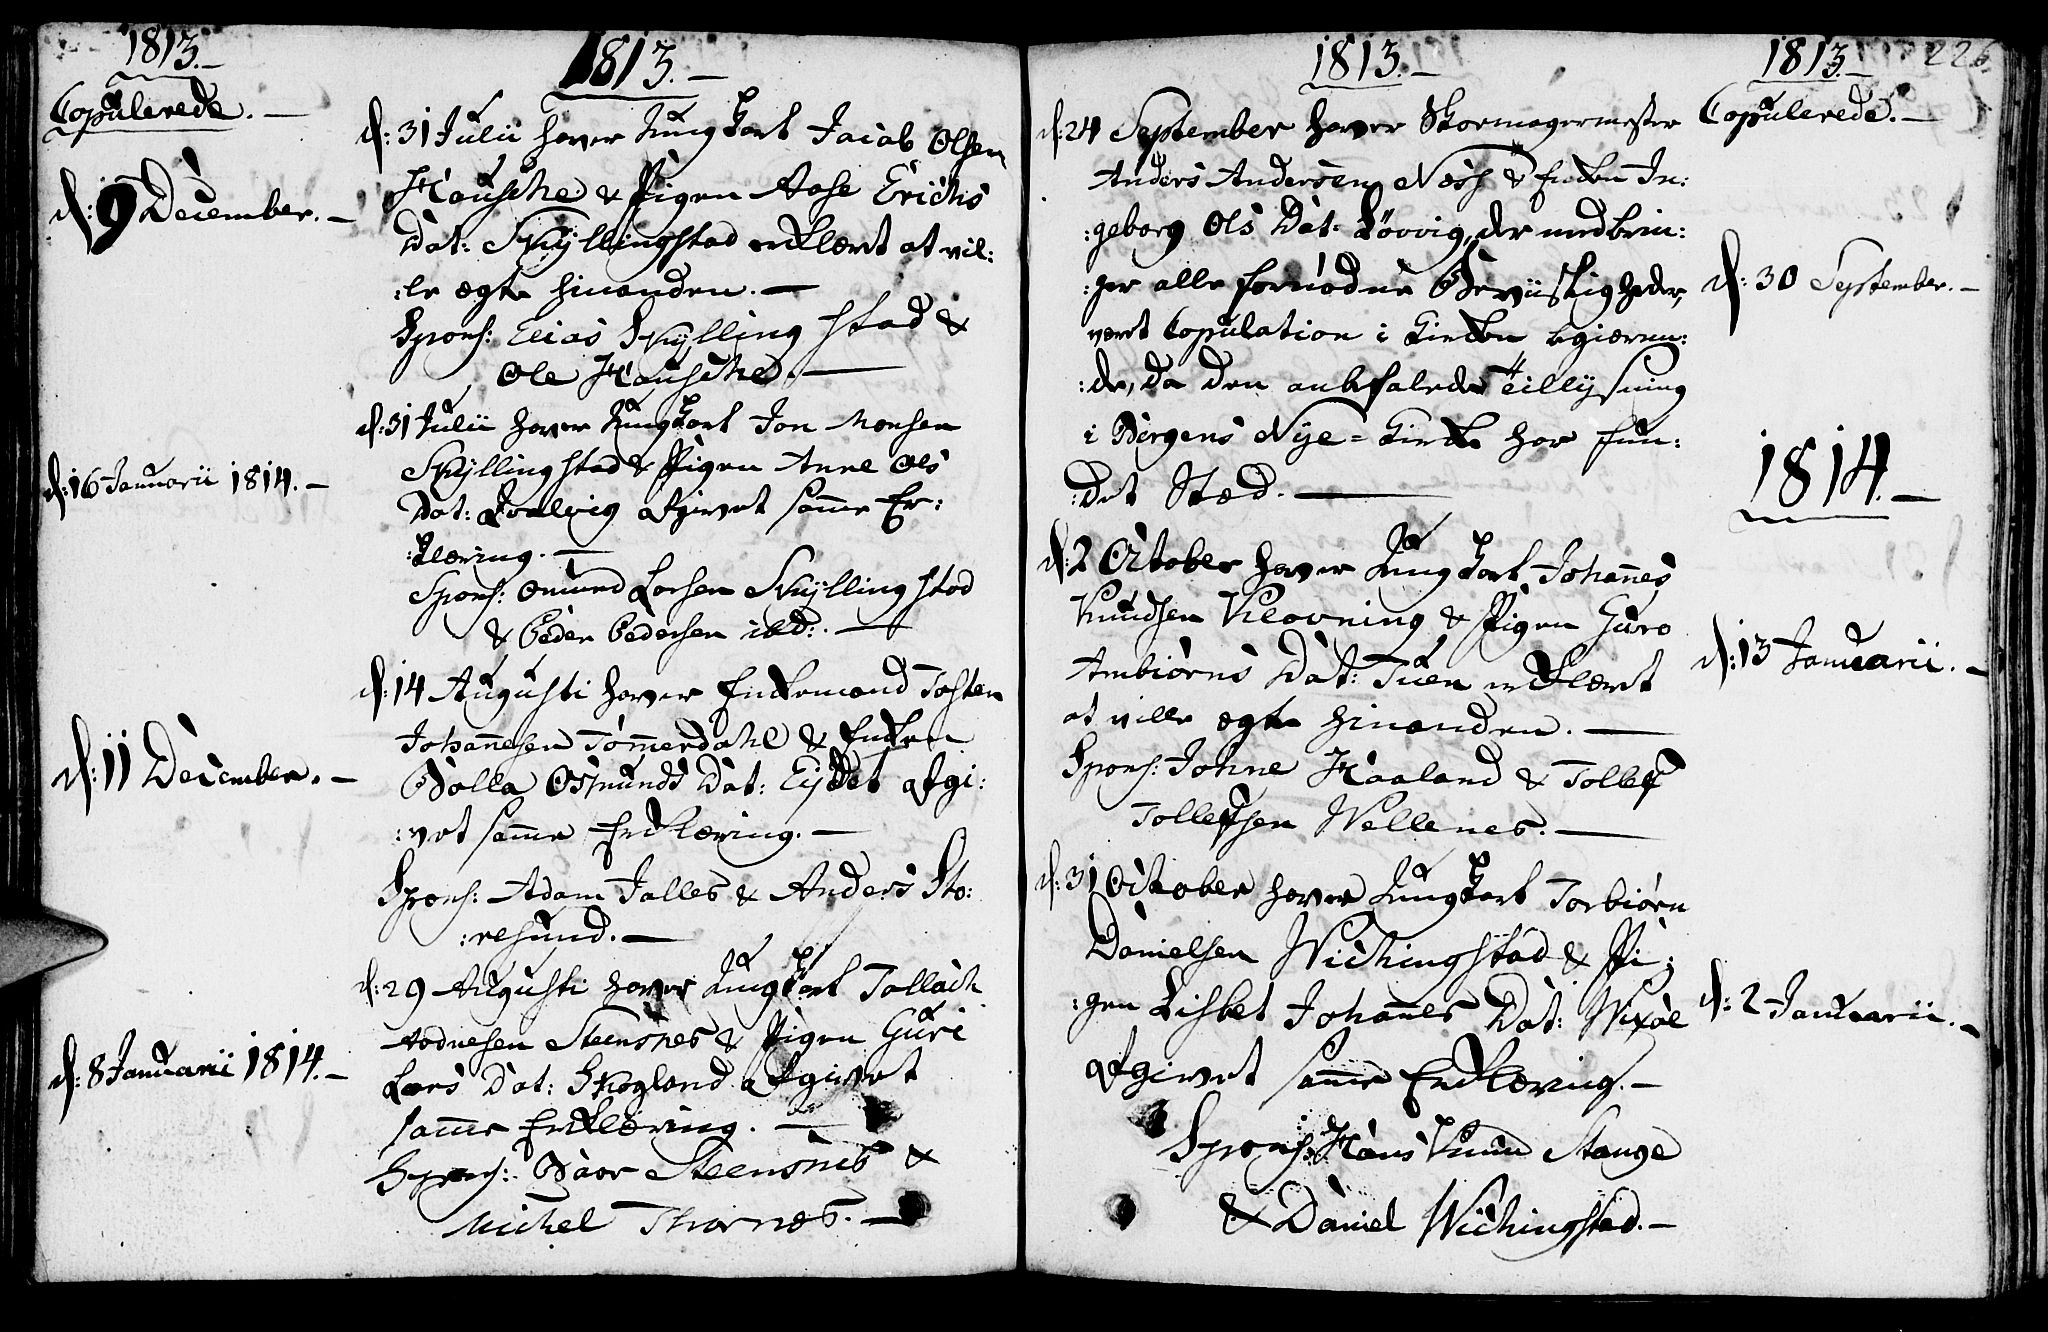 1813.-
Copulerede. -
d: 9 December. -
d: 16 Januarii 1814. -
d: 11 December. -
d: 8 Januarii 1814. -
1813. -
d: 31 Julii haver Ungkarl Jacob Olsen
Hausche & Pigen Aase Erichs
Dat: Skyllingstad erklært at vil:
:le ægte hinanden. -
Spons: Elias Skyllingstad &
Ole Hausche. -
d: 31 Julii haver Ungkarl Jon Monsen
Skyllingstad & Pigen Anne Ols
Dat: afgivet samme Er:
:klæring. -
Spons: Omund Larsen Skyllingstad
& Peder Pedersen ibd: -
d: 14 Augusti haver Enkemand Tosten
Johannesen Tömmerdahl & Enken
Osmunds Dat: Eydet afgi:
:vet samme Erklæring. -
Spons: Adam Valles & Anders Sto:
:resund. -
d: 29 Augusti haver Ungkarl Tollach
Aadnesen Steensnes & Pigen Guri
Lars Dat: Skogland afgivet
samme Erklæring. -
Spons: Baar Steensnes &
Michel Thornes. -
1813. -
d: 24 September haver Skomagermester
Anders Andersen Næss & Enken In:
:geborg Ols Dat: Lövvig, der medbrin:
:ger alle fornödne Beviisligheder,
været Copulation i Kirken begiæren:
:de, da den anbefalede Tillysning
i Bergens Nye=Kirke har fun:
:det Stæd. -
d: 2 October haver Ungkarl Johannes
Knudsen Klovning & Pigen Guro
Ambiörns Dat: Tuen erklært
at ville ægte hinanden. -
Spons: Johne Haaland & Tollef
Tollefsen Wellenes. -
d: 31 October haver Ungkarl Torbiörn
Danielsen Wichingstad & Pi:
:gen Lisbet Johannes Dat: Wixöe
afgivet samme Erklæring. -
Spons: Hans Knud Stange
& Daniel Wichingstad. -
1813. - 226
Copulerede. -
d: 30 September. -
1814. -
d: 13 Januarii. -
d: 2 Januarii. -